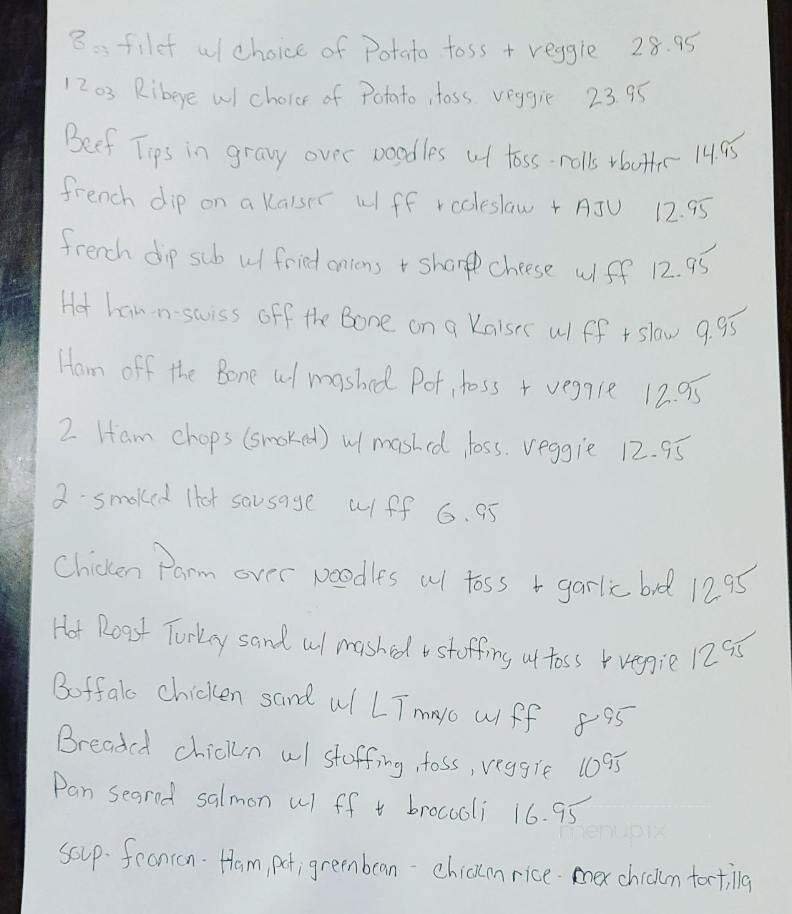 8 oz filet w/ choice of Potato toss + veggie 28.95
12 oz Ribeye w/ choice of Potato, toss. veggie 23.95
Beef Tips in gravy over noodles w/ toss - rolls + butter 14.95
french dip on a Kaiser w/ ff + coleslaw + AJU 12.95
french dip sub w/ fried onions + sharp cheese w/ ff 12.95
Hot ham-n-swiss off the Bone on a Kaiser w/ ff + slaw 9.95
Ham off the Bone w/ mashed Pot, toss + veggie 12.95
2 Ham chops (smoked) w/ mashed, toss. veggie 12.95
2 - smoked Hot sausage w/ ff 6.95
Chicken Parm over Noodles w/ toss + garlic brd 12.95
Hot Roast Turkey sand w/ mashed + stuffing w/ toss + veggie 12.95
Buffalo chicken sand w/ LT mayo w/ ff 8.95
Breaded chicken w/ stuffing, toss, veggie 10.95
Pan seared salmon w/ ff + broccoli 16.95
menupix
Soup - Ham, pot, greenbean - chicken rice - mex chicken tortilla